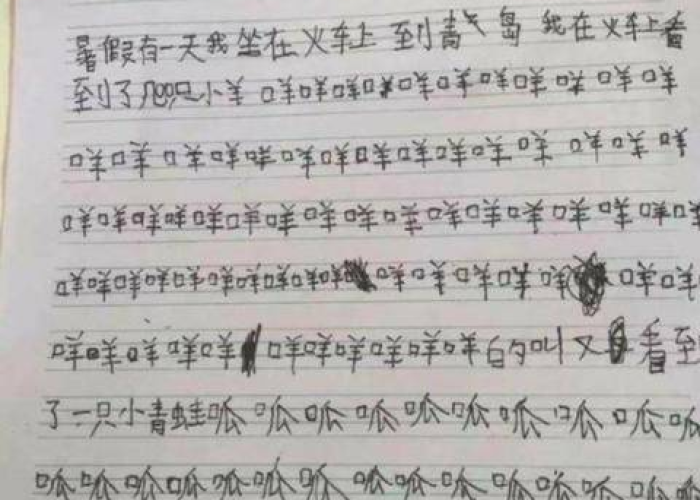 暑假有一天我坐在火车上到青岛 我在火车上看
到了几只小羊 咩咩咩咩咩咩咩咩咩咩咩
咩咩咩咩咩咩咩咩咩咩咩咩咩咩咩
咩咩咩咩咩咩咩咩咩咩咩咩咩咩咩咩咩
咩咩咩咩咩咩咩咩咩咩咩咩咩咩咩咩咩
咩咩咩咩咩咩咩咩咩咩咩的叫又看到
了一只小青蛙呱呱呱呱呱呱呱呱呱呱
呱呱呱呱呱呱呱呱呱呱呱呱呱呱